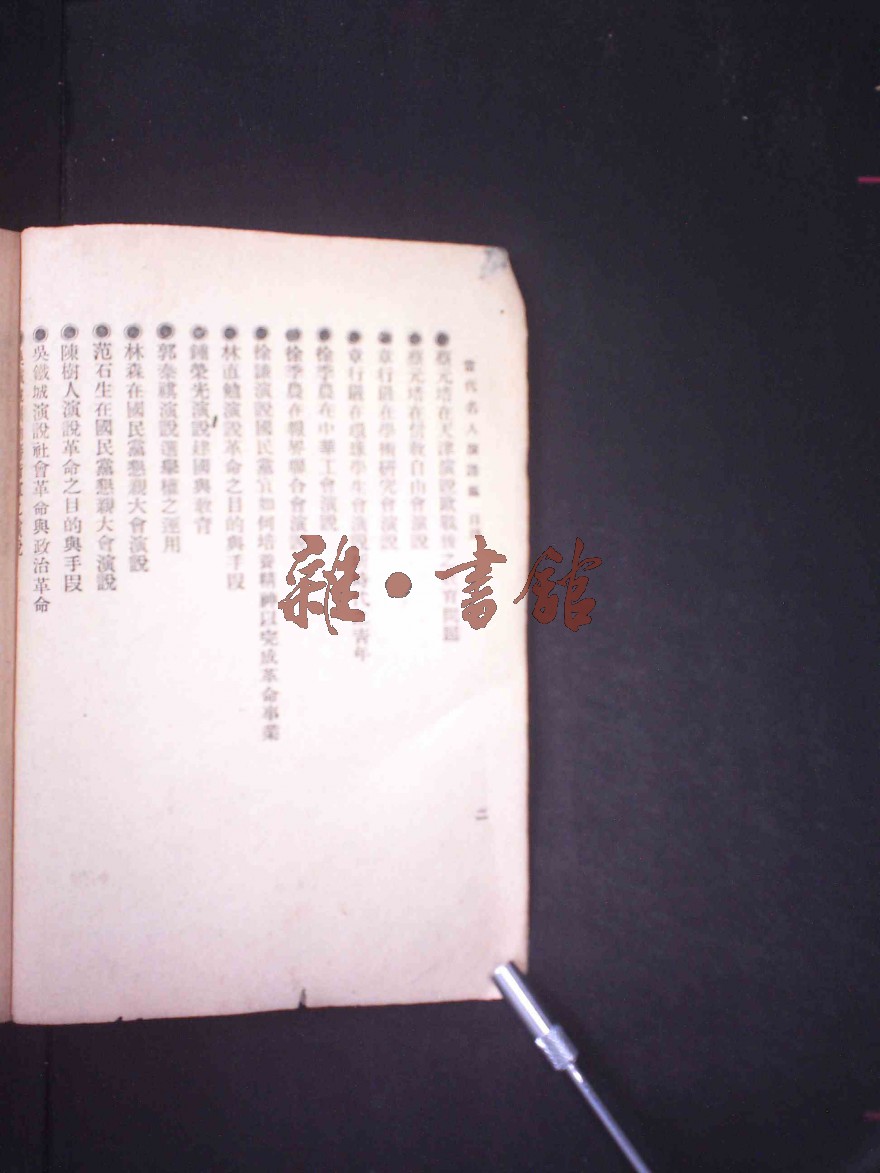 當代名人演說集 目錄
●蔡元培在天津演說歐戰後之教育問題
●蔡元培在信教自由會演說
●章行嚴在學術研究會演說
●章行嚴在環球學生會演說
●徐季農在中華工會演說
●徐季農在報界聯合會演
●徐謙演說國民黨宜如何培養精神以完成革命事業
●林直勉演說革命之目的與手段
●鍾榮光演說建國與教育
●郭泰祺演說選舉權之運用
●林森在國民黨懇親大會演說
●范石生在國民黨懇親大會演說
●陳樹人演說革命之目的與手段
●吳鐵城演說社會革命與政治革命
二
雜·書館